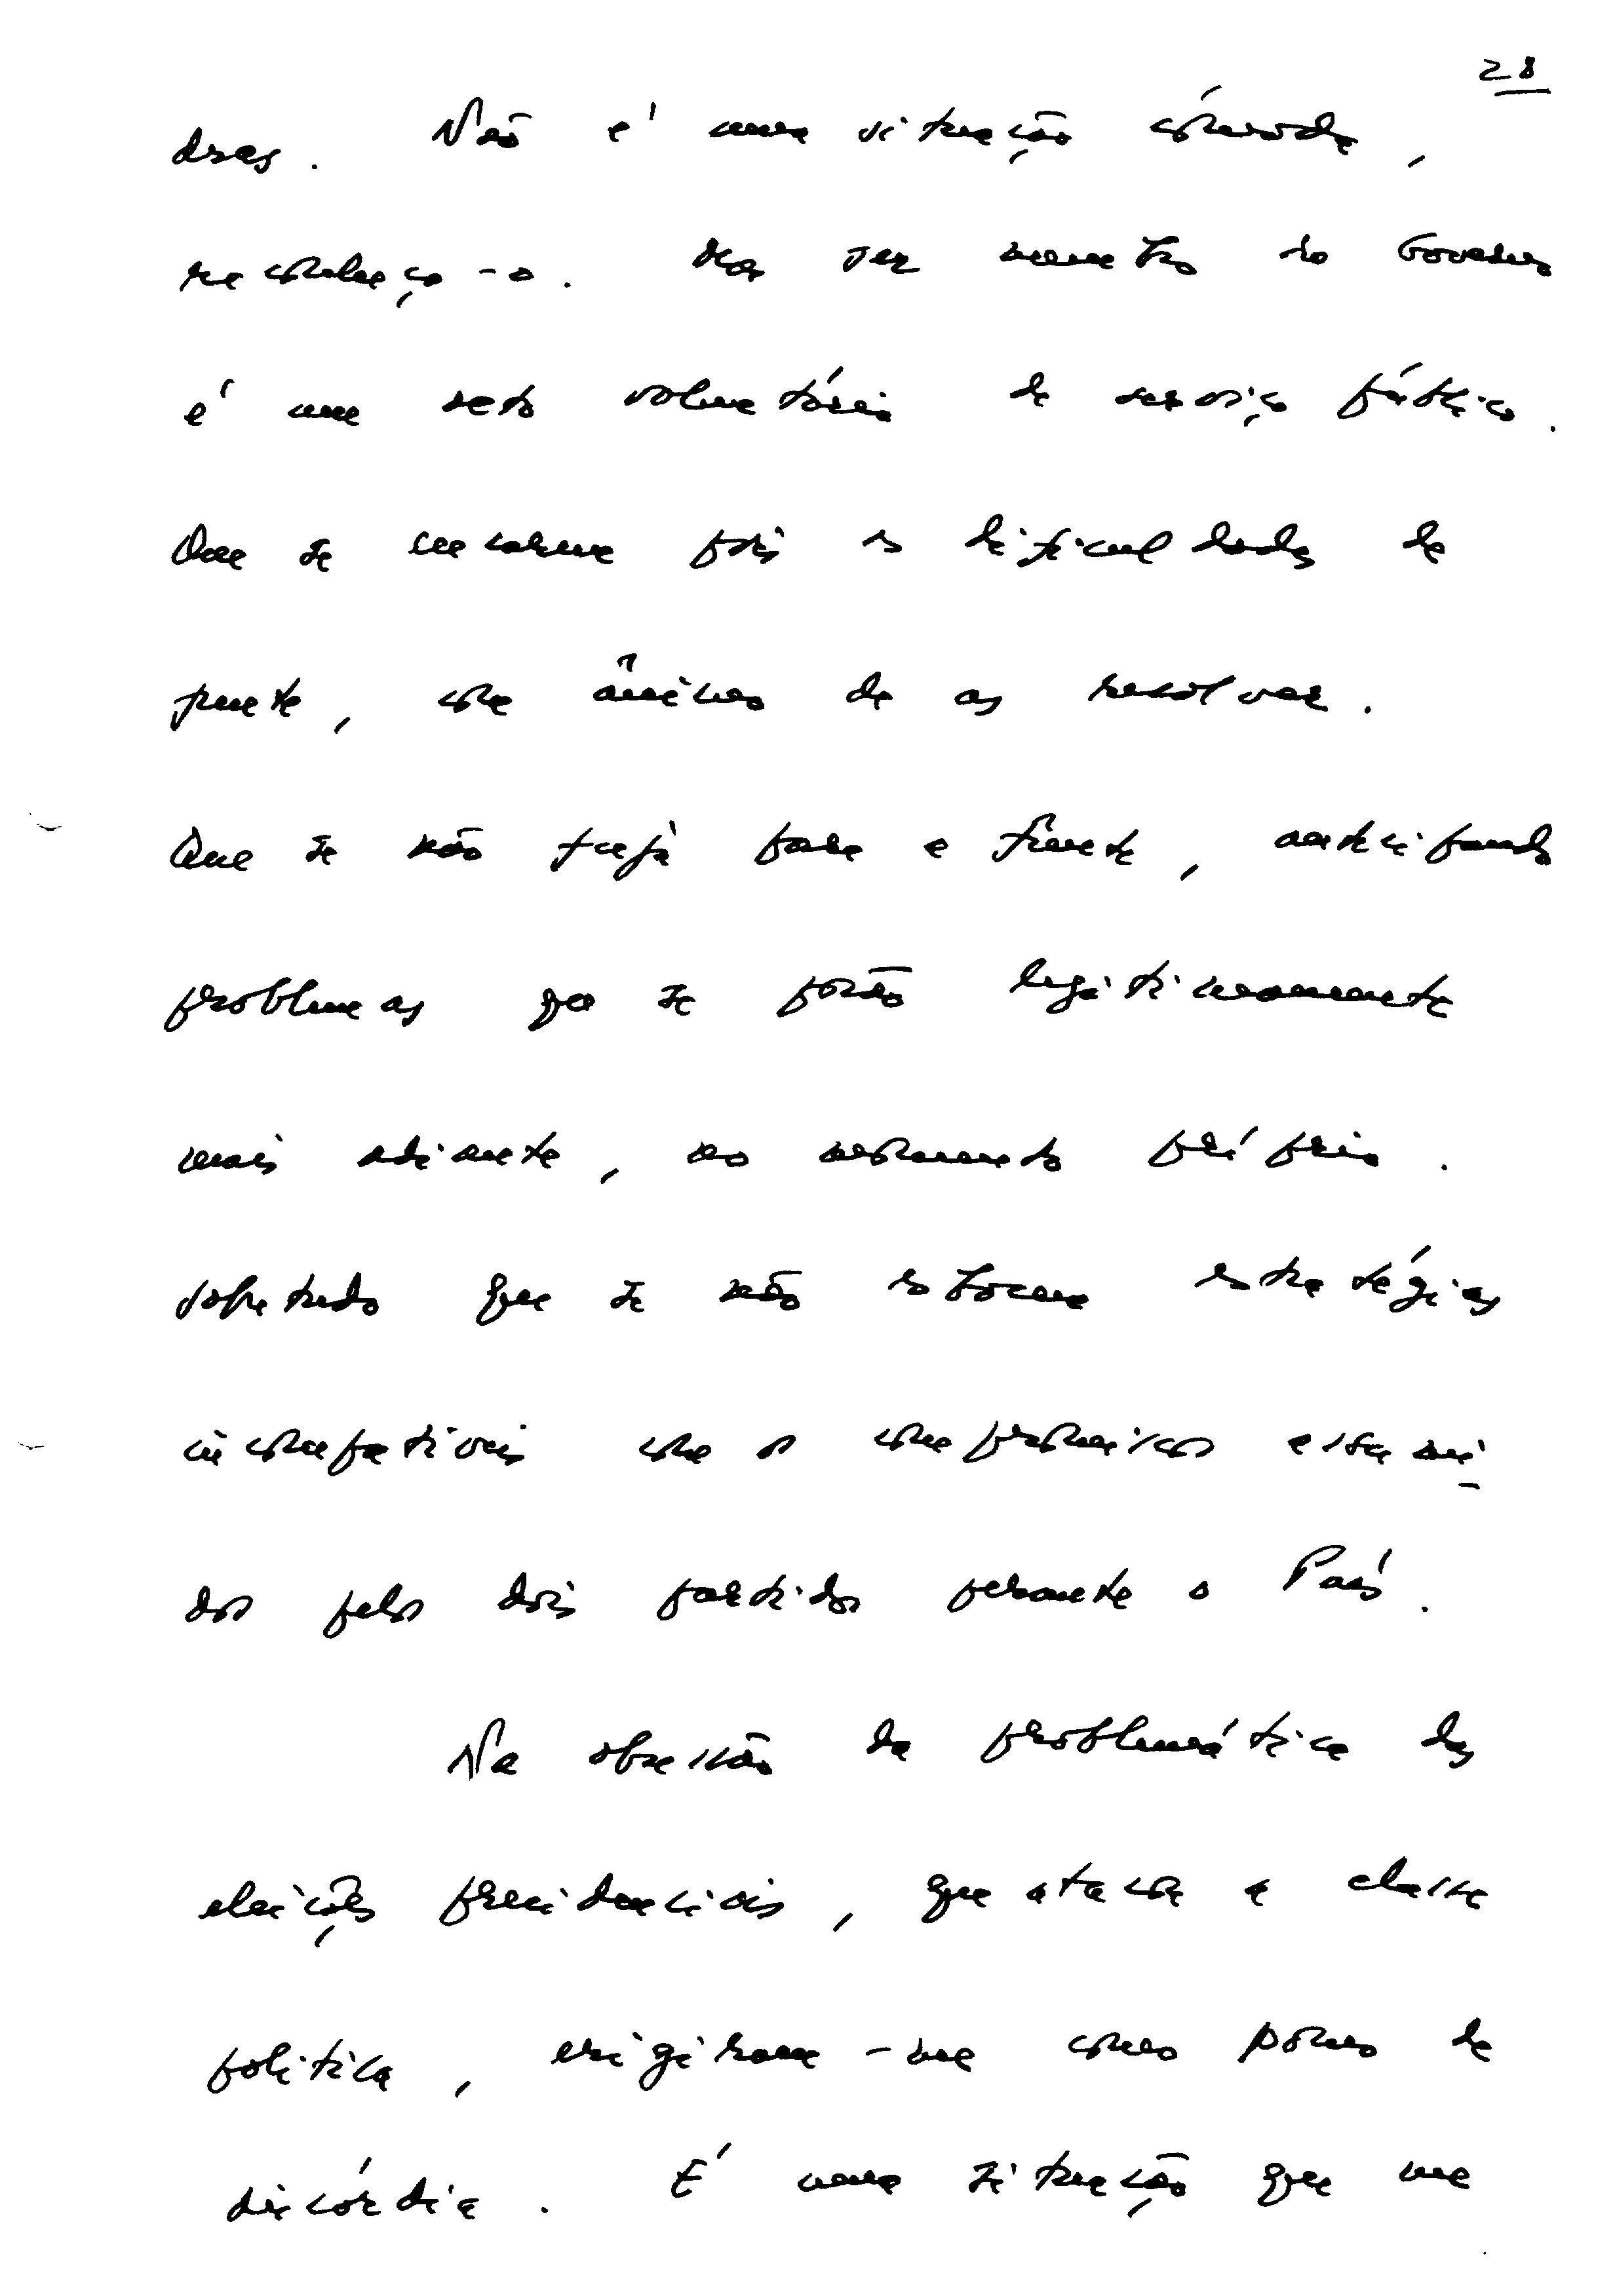 28
dras. Não é uma situação cómoda,
reconheço-o. Mas ser membro do Governo
é um acto voluntário de serviço público.
Que se encarem pois as dificuldades de
frente, com ânimo de as resolver.
Que se não fuja para a frente, antecipando
problemas que se porão legitimamente
mais adiante, no momento próprio.
Sobretudo que se não esbocem estratégias
incompatíveis com o compromisso assumi-
dos pelos dois partidos perante o País.
Na obsessão da problemática das
eleições presidenciais, que ataca a classe
política, erigiram-me como pomo de
discórdia. É uma situação que me